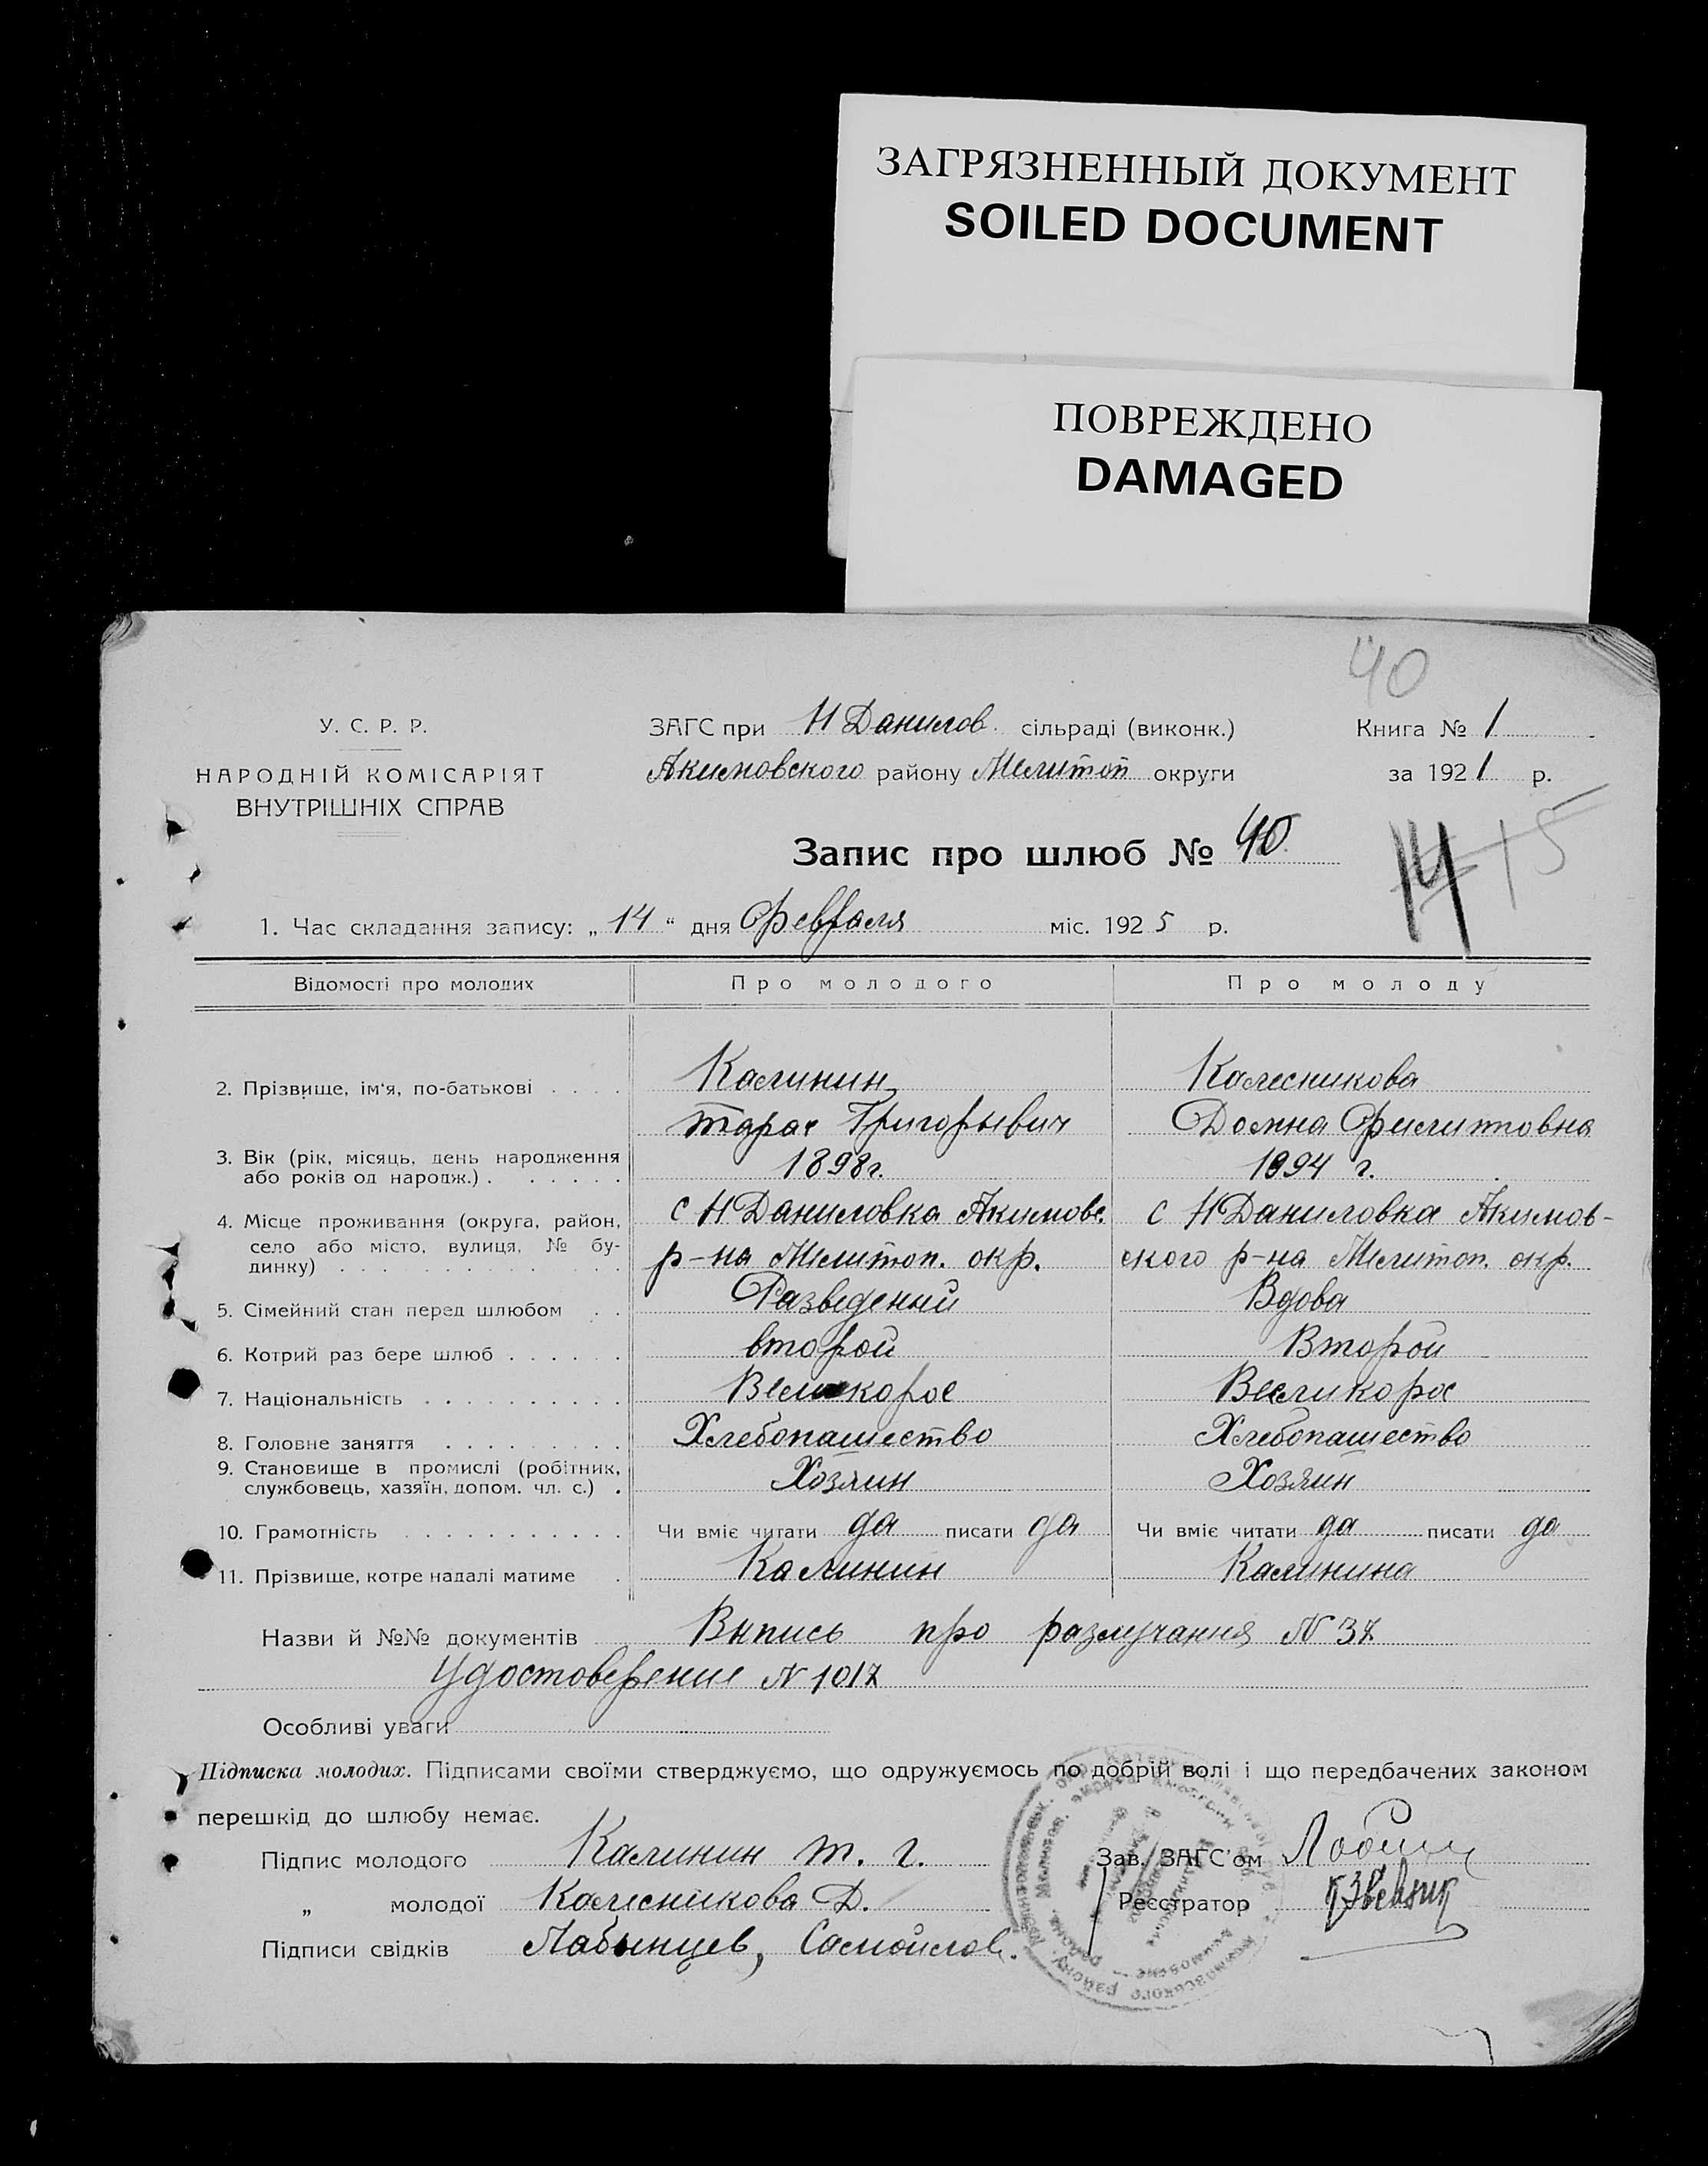 ЗАГРЯЗНЕННЫЙ ДОКУМЕНТ
SOILED DOCUMENT
ПОВРЕЖДЕНО
DAMAGED
40
У. С. Р. Р.
НАРОДНІЙ КОМІСАРІЯТ
ВНУТРІШНІХ СПРАВ
ЗАГС при Н Данилов. сільраді (виконк.)
Акимовского району Мелитоп округи
Книга № 1
за 1921 р.
Запис про шлюб № 40
14 15
1. Час складання запису: „ 14 “ дня Февраля міс. 1925 р.
Відомості про молодих Про молодого Про молоду
2. Прізвище, ім‘я, по-батькові Калинин Калесникова
Тарас Григорьевич Домна Филиповна
3. Вік (рік, місяць, день народження
або років од народж.) 1898 г. 1894 г.
4. Місце проживання (округа, район, с Н Даниловка Акимовс. с Н Даниловка Акимов-
село або місто, вулиця, № бу-
динку) р-на Мелитоп. окр. ского р-на Мелитоп. окр.
5. Сімейний стан перед шлюбом Разведений Вдова
6. Котрий раз бере шлюб второй Второй
7. Національність Великорос Великорос
8. Головне заняття Хлебопашество Хлебопашество
9. Становище в промислі (робітник,
службовець, хазяїн, допом. чл. с.) Хозяин Хозяин
10. Грамотність Чи вміє читати да писати да Чи вміє читати да писати да
11. Прізвище, котре надалі матиме Калинин Калинина
Назви й №№ документів Выпись про разлучання N 37
Удостоверение N 1017
Особливі уваги
Підписка молодих. Підписами своїми стверджуємо, що одружуємось по добрій волі і що передбачених законом
перешкід до шлюбу немає.
Підпис молодого Калинин Т. Г. Зав. ЗАГС'ом
„ молодої Калесникова Д. Реєстратор
Підписи свідків Лабынцев, Самойлов.